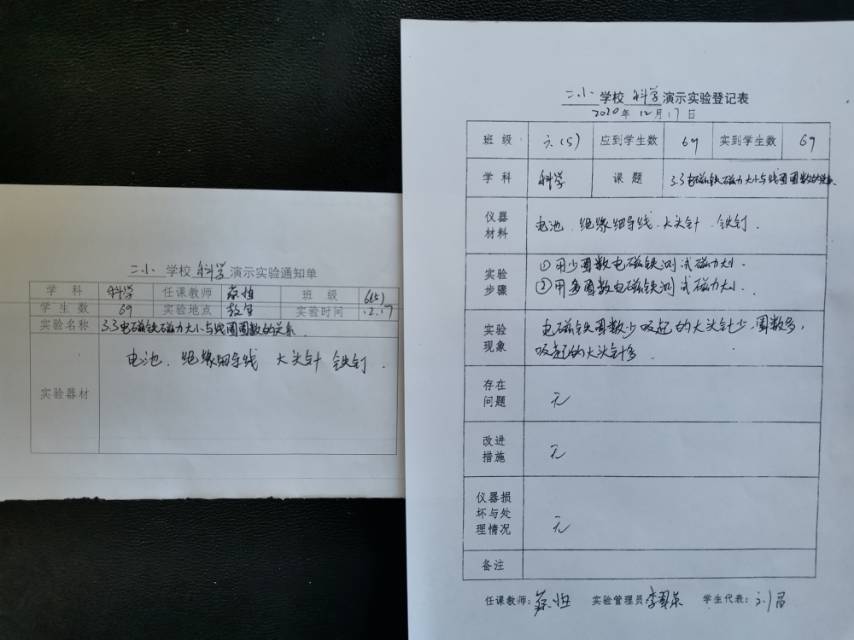 二小 学校 科学 演示实验通知单
学科 科学 任课教师 班级 6(5)
学生数 69 实验地点 教室 实验时间 12.17
实验名称 3.3电磁铁磁力大小与线圈圈数的关系
实验器材 电池、绝缘细导线 大头针 铁钉.
二小 学校 科学 演示实验登记表
2020年12月17日
班级 六(5) 应到学生数 69 实到学生数 69
学科 科学 课题 3.3电磁铁磁力大小与线圈圈数的关系
仪器材料 电池、绝缘细导线、大头针 铁钉.
实验步骤 ①用少圈数电磁铁测试磁力大小.
②用多圈数电磁铁测试磁力大小.
实验现象 电磁铁圈数少吸起的大头针少,圈数多,
吸起的大头针多.
存在问题 无
改进措施 无
仪器损坏与处理情况 无
备注
任课教师: 实验管理员 学生代表: